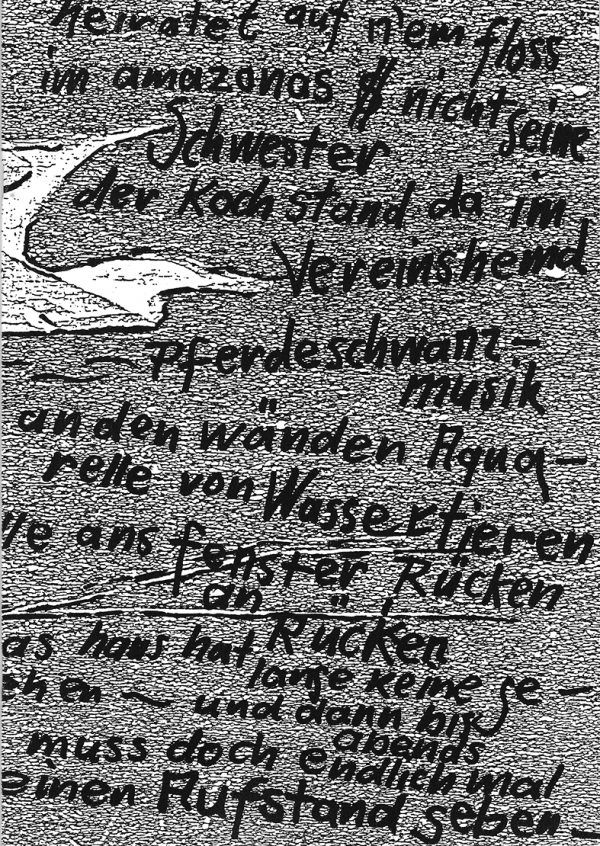 heiratet auf n'em floss
im amazonas $ nicht seine
Schwester
der Koch stand da im
Vereinshemd
— Pferdeschwanz-
musik
an den wänden Aqua-
relle von Wassertieren
lle ans fenster Rücken
an Rücken
as haus hat lange keine ge-
hen — und dann bis
abends
muss doch endlich mal
einen Aufstand geben